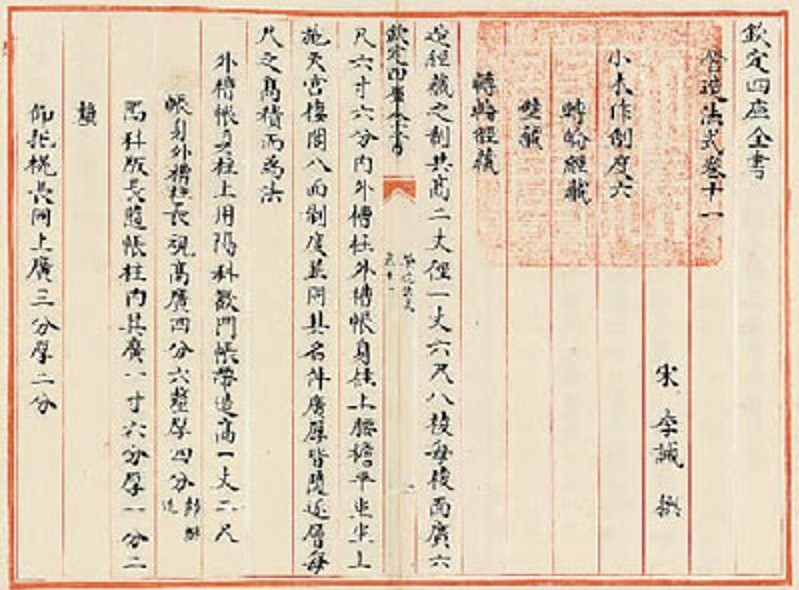 欽定四庫全書
營造法式卷十一
宋 李誡 撰
小木作制度六
轉輪經藏
壁藏
轉輪經藏
造經藏之制共高二丈徑一丈六尺八稜每稜面廣六
欽定四庫全書
營造法式
卷十一
尺六寸六分內外槽柱外槽帳身柱上腰檐平坐坐上
施天宮樓閣八面制度並同其名件廣厚皆隨逐層每
尺之高積而為法
外槽帳身柱上用隔科歡門帳帶造高一丈二尺
帳身外槽柱長視高廣四分六釐厚四分歸瓣造
隔科版長隨帳柱內其廣一寸六分厚一分二
釐
仰托榥長同上廣三分厚二分